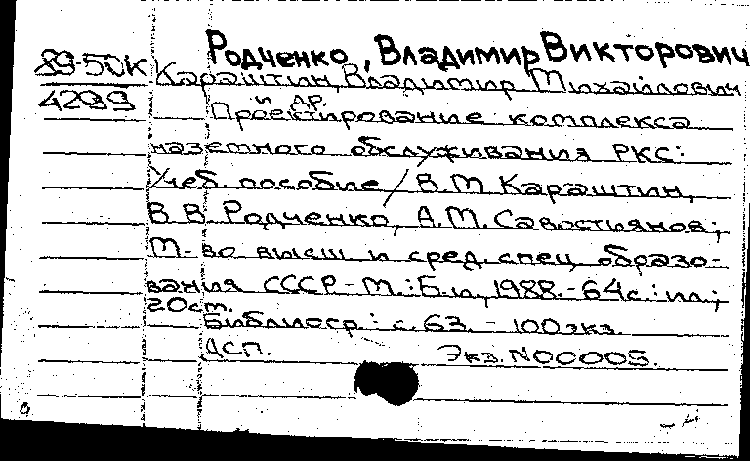 Родченко, Владимир Викторович
89-50К Караштин, Владимир Михайлович
4299 и др.
Проектирование комплекса
наземного обслуживания РКС:
Учеб. пособие / В.М Караштин,
В.В. Родченко, А.М. Савостиянов;
М-во высш и сред. спец. образо-
вания СССР - М.: Б.и, 1988. - 64с.: ил;
20ст.
Библиогр: с. 63. - 100экз.
ДСП. Экз. N00005.